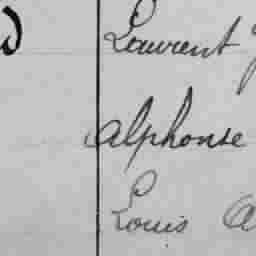 Laurent
Alphonse
Louis